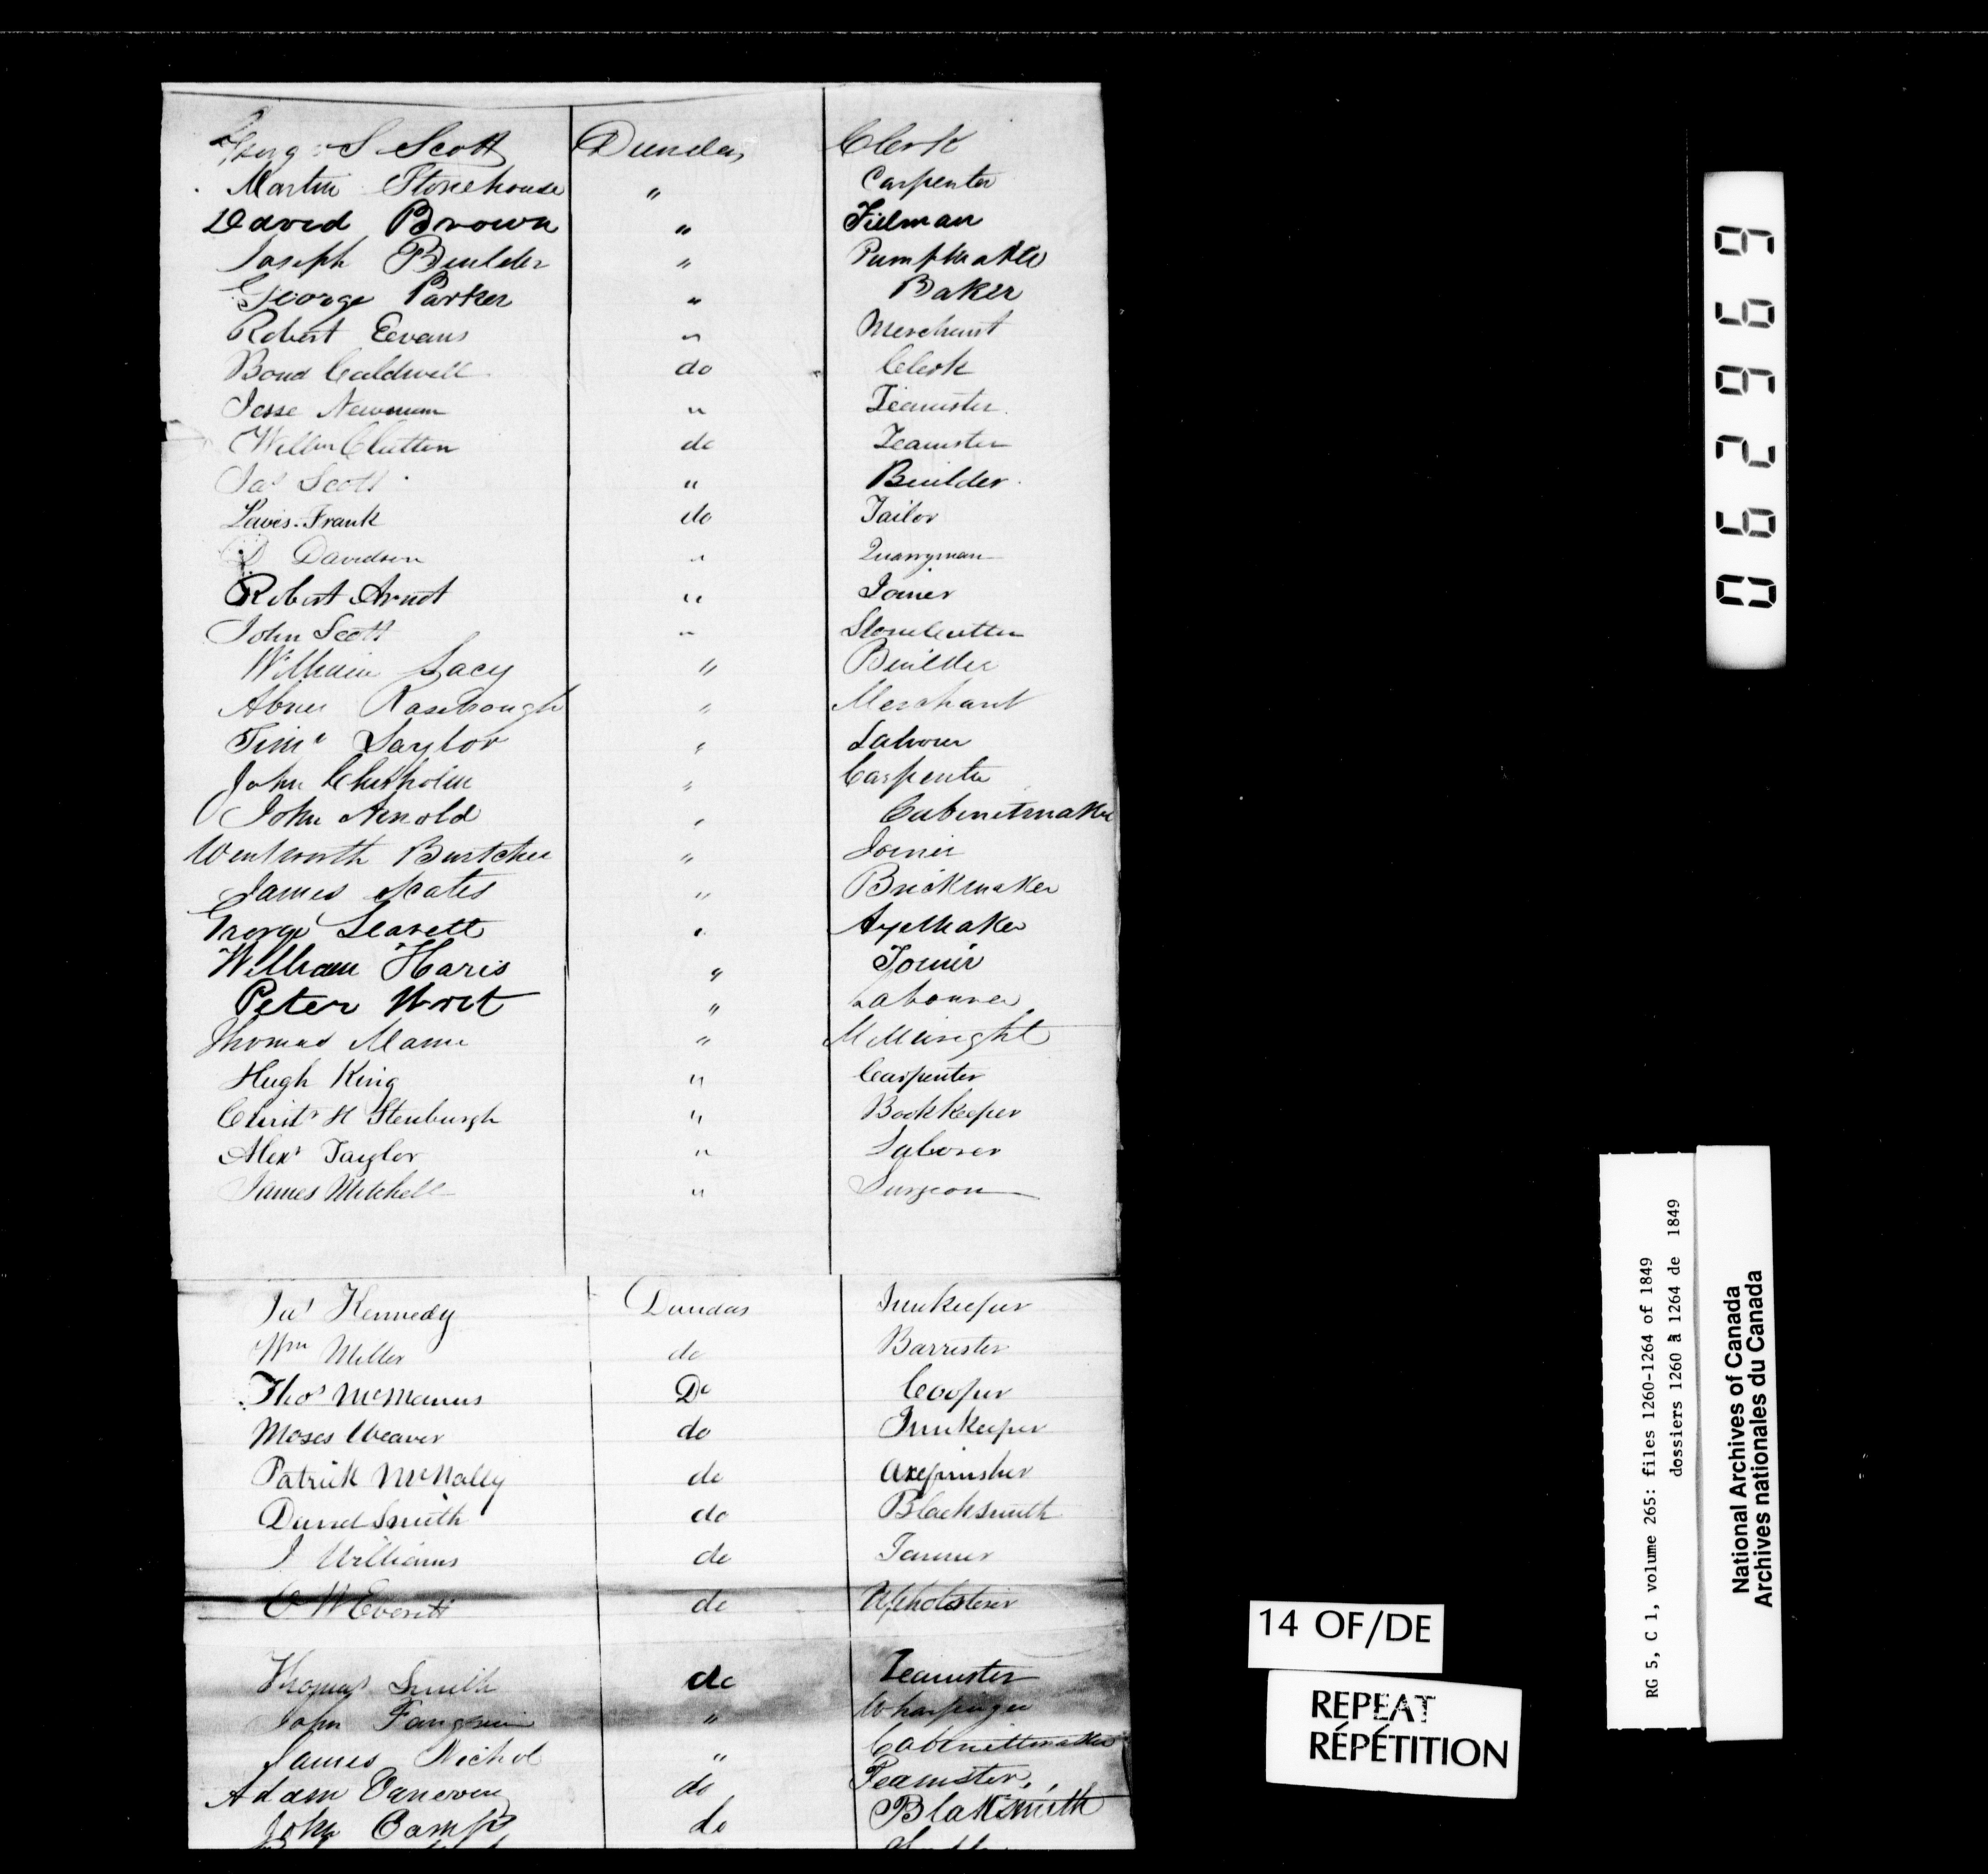 George S Scott Dundas Clerk
Martin Stonehouse " Carpenter
David Brown " Filman
Joseph Builder " Pumpmaker
George Parker " Baker
Robert Eevans " Merchant
Bond Caldwell do Clerk
Jesse Newman " Teamster
Willm Clutton do Teamster
Jas Scott " Builder
Lewis Frank do Tailor
D Davidson " Quarryman
Robert Arnot " Joiner
John Scott " Stonecutter
William Lacy " Builder
Abner Rosebrough " Merchant
Saylor " Labourer
John Chisholm " Carpenter
John Arnold " Cabinetmaker
Wentworth Burtcher " Joiner
James Scates " Brickmaker
George Leavett " Axe Maker
William Haris " Joiner
Peter " Labourer
Thomas Mann " Millwright
Hugh King " Carpenter
H Stenburgh " Bookkeeper
Alexr Taylor " Laborer
James Mitchell " Surgeon
Jas Kennedy Dundas Innkeeper
Wm Miller do Barrister
Thos McManus Do Cooper
Moses Weaver do Innkeeper
Patrick McNally do Axefinisher
David Smith do Blacksmith
J Williams do Tanner
C W Everett do Upholsterer
Thomas Smith do Teamster
John " Wharfinger
James Nichol " Cabinettmaker
Adam Vanevery do Teamster
John Camp do Blaksmith
062969
RG 5, C 1, volume 265: files 1260-1264 of 1849
dossiers 1260 à 1264 de 1849
National Archives of Canada
Archives nationales du Canada
14 OF/DE
REPEAT
RÉPÉTITION